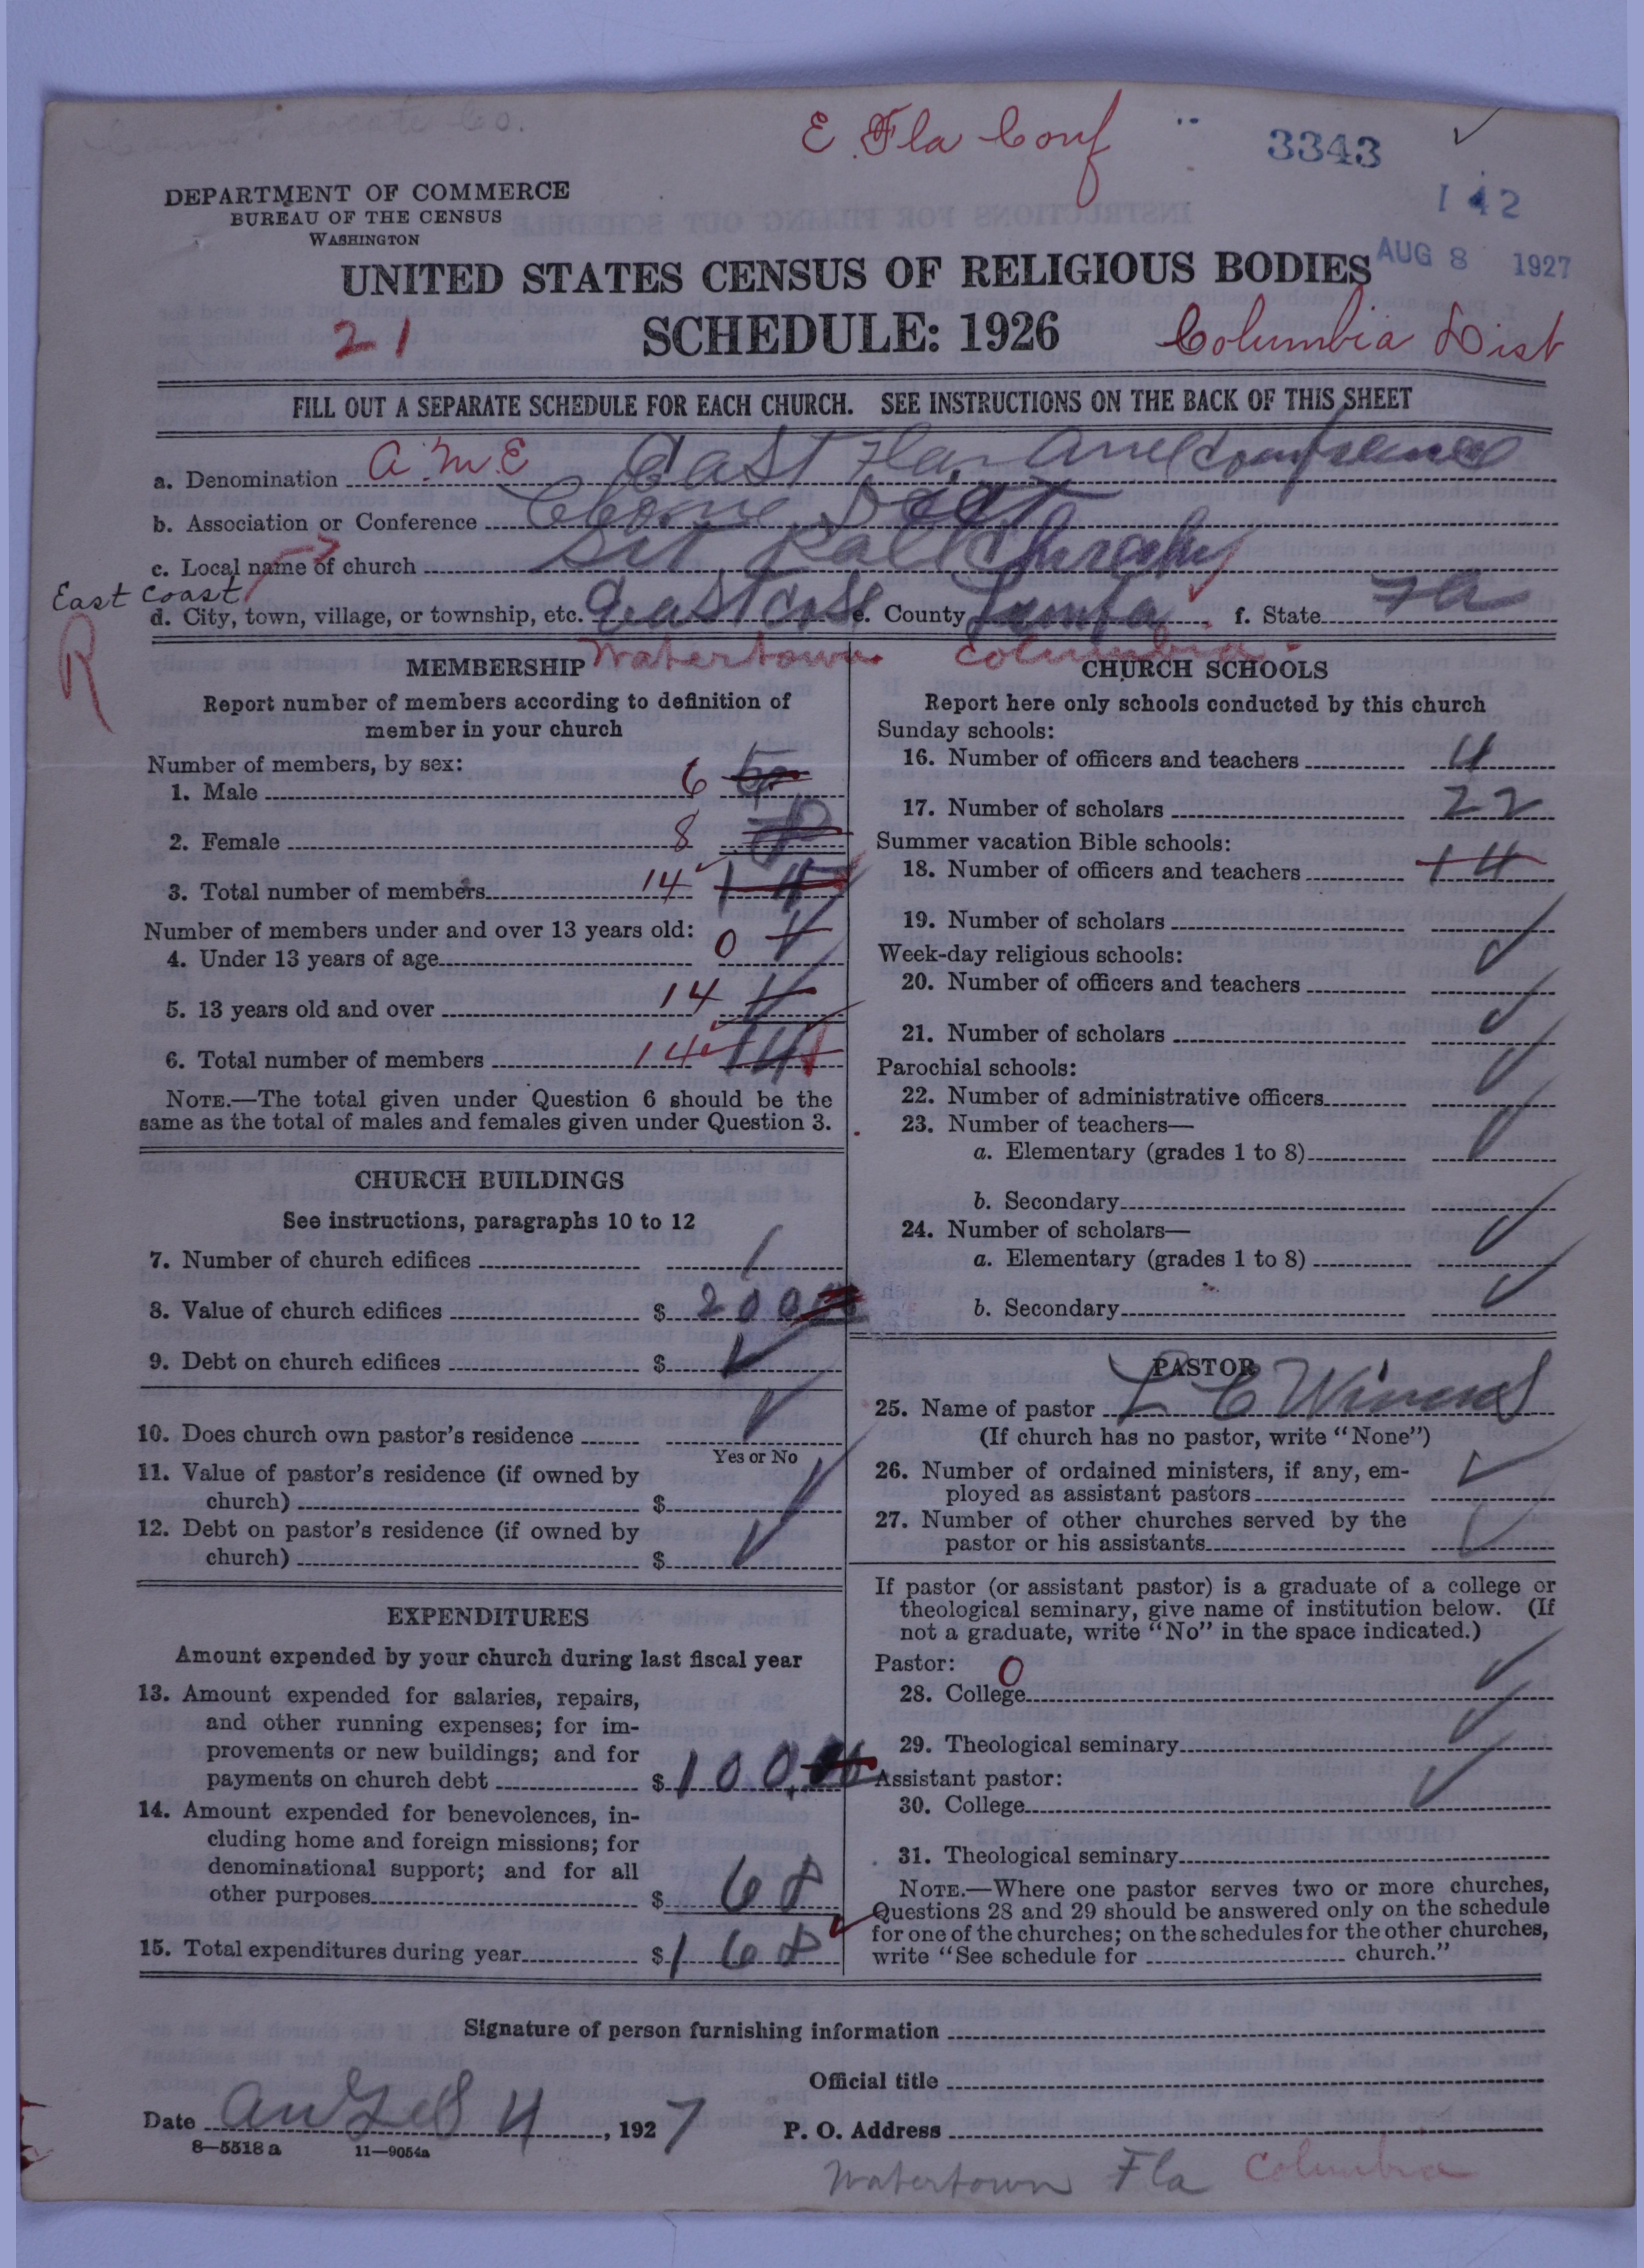 E. Fla Conf
3343
DEPARTMENT OF COMMERCE
BUREAU OF THE CENSUS
WASHINGTON
142
AUG 8 1927
UNITED STATES CENSUS OF RELIGIOUS BODIES
21 SCHEDULE: 1926 Columbia Dist
FILL OUT A SEPARATE SCHEDULE FOR EACH CHURCH. SEE INSTRUCTIONS ON THE BACK OF THIS SHEET
a. Denomination A.M.E East Fla
b. Association or Conference
c. Local name of church
East Coast
d. City, town, village, or township, etc. e. County f. State Fla
R Watertown Columbia
MEMBERSHIP
Report number of members according to definition of
member in your church
Number of members, by sex:
1. Male 6
2. Female 8
3. Total number of members 14
Number of members under and over 13 years old:
4. Under 13 years of age 0
5. 13 years old and over 14
6. Total number of members 14 14
NOTE.—The total given under Question 6 should be the
same as the total of males and females given under Question 3.
CHURCH BUILDINGS
See instructions, paragraphs 10 to 12
7. Number of church edifices 1
8. Value of church edifices $ 200
9. Debt on church edifices $
10. Does church own pastor's residence
Yes or No
11. Value of pastor's residence (if owned by
church) $
12. Debt on pastor's residence (if owned by
church) $
EXPENDITURES
Amount expended by your church during last fiscal year
13. Amount expended for salaries, repairs,
and other running expenses; for im-
provements or new buildings; and for
payments on church debt $ 100.
14. Amount expended for benevolences, in-
cluding home and foreign missions; for
denominational support; and for all
other purposes $ 68
15. Total expenditures during year $ 168
CHURCH SCHOOLS
Report here only schools conducted by this church
Sunday schools:
16. Number of officers and teachers 4
17. Number of scholars 22
Summer vacation Bible schools:
18. Number of officers and teachers 14
19. Number of scholars
Week-day religious schools:
20. Number of officers and teachers
21. Number of scholars
Parochial schools:
22. Number of administrative officers
23. Number of teachers—
a. Elementary (grades 1 to 8)
b. Secondary
24. Number of scholars—
a. Elementary (grades 1 to 8)
b. Secondary
PASTOR
25. Name of pastor L C
(If church has no pastor, write "None")
26. Number of ordained ministers, if any, em-
ployed as assistant pastors
27. Number of other churches served by the
pastor or his assistants
If pastor (or assistant pastor) is a graduate of a college or
theological seminary, give name of institution below. (If
not a graduate, write "No" in the space indicated.)
Pastor: 0
28. College
29. Theological seminary
Assistant pastor:
30. College
31. Theological seminary
NOTE.—Where one pastor serves two or more churches,
Questions 28 and 29 should be answered only on the schedule
for one of the churches; on the schedules for the other churches,
write "See schedule for church."
Signature of person furnishing information
Official title
Date 4, 1927 P. O. Address
8—5518 a 11—9054a
Watertown Fla Columbia